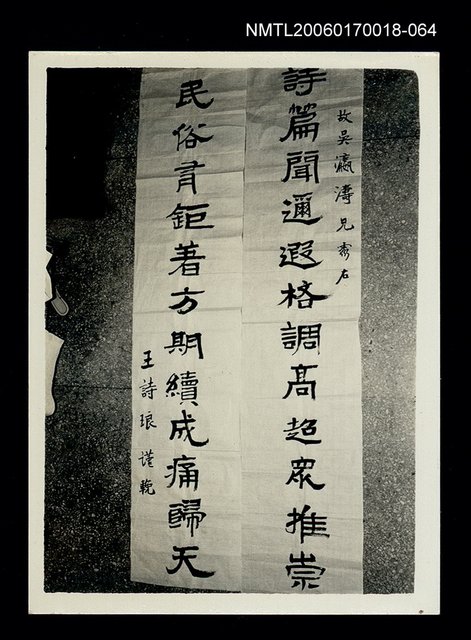 NMTL20060170018-064
故吳瀛濤兄靈右
詩篇聞邇遐格調高超衆推崇
民俗有鉅著方期續成痛歸天
王詩琅謹輓